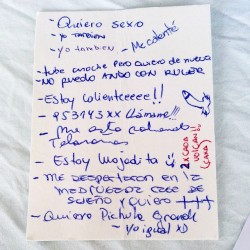 - Quiero sexo
- yo también
- Yo tambien
- Me calenté
- tube anoche pero quiero de nuevo
- NO PUEDO ANDO CON RULER
- Estoy calienteeeee!!
- 953145xx LLámame!!
- Me esta
Telaranas
- Estoy Mojadita
- ME DESPERTARON EN 1/2
SUEÑO y QUIERO
- Quiero Pichula Grande
- Yo igual XD